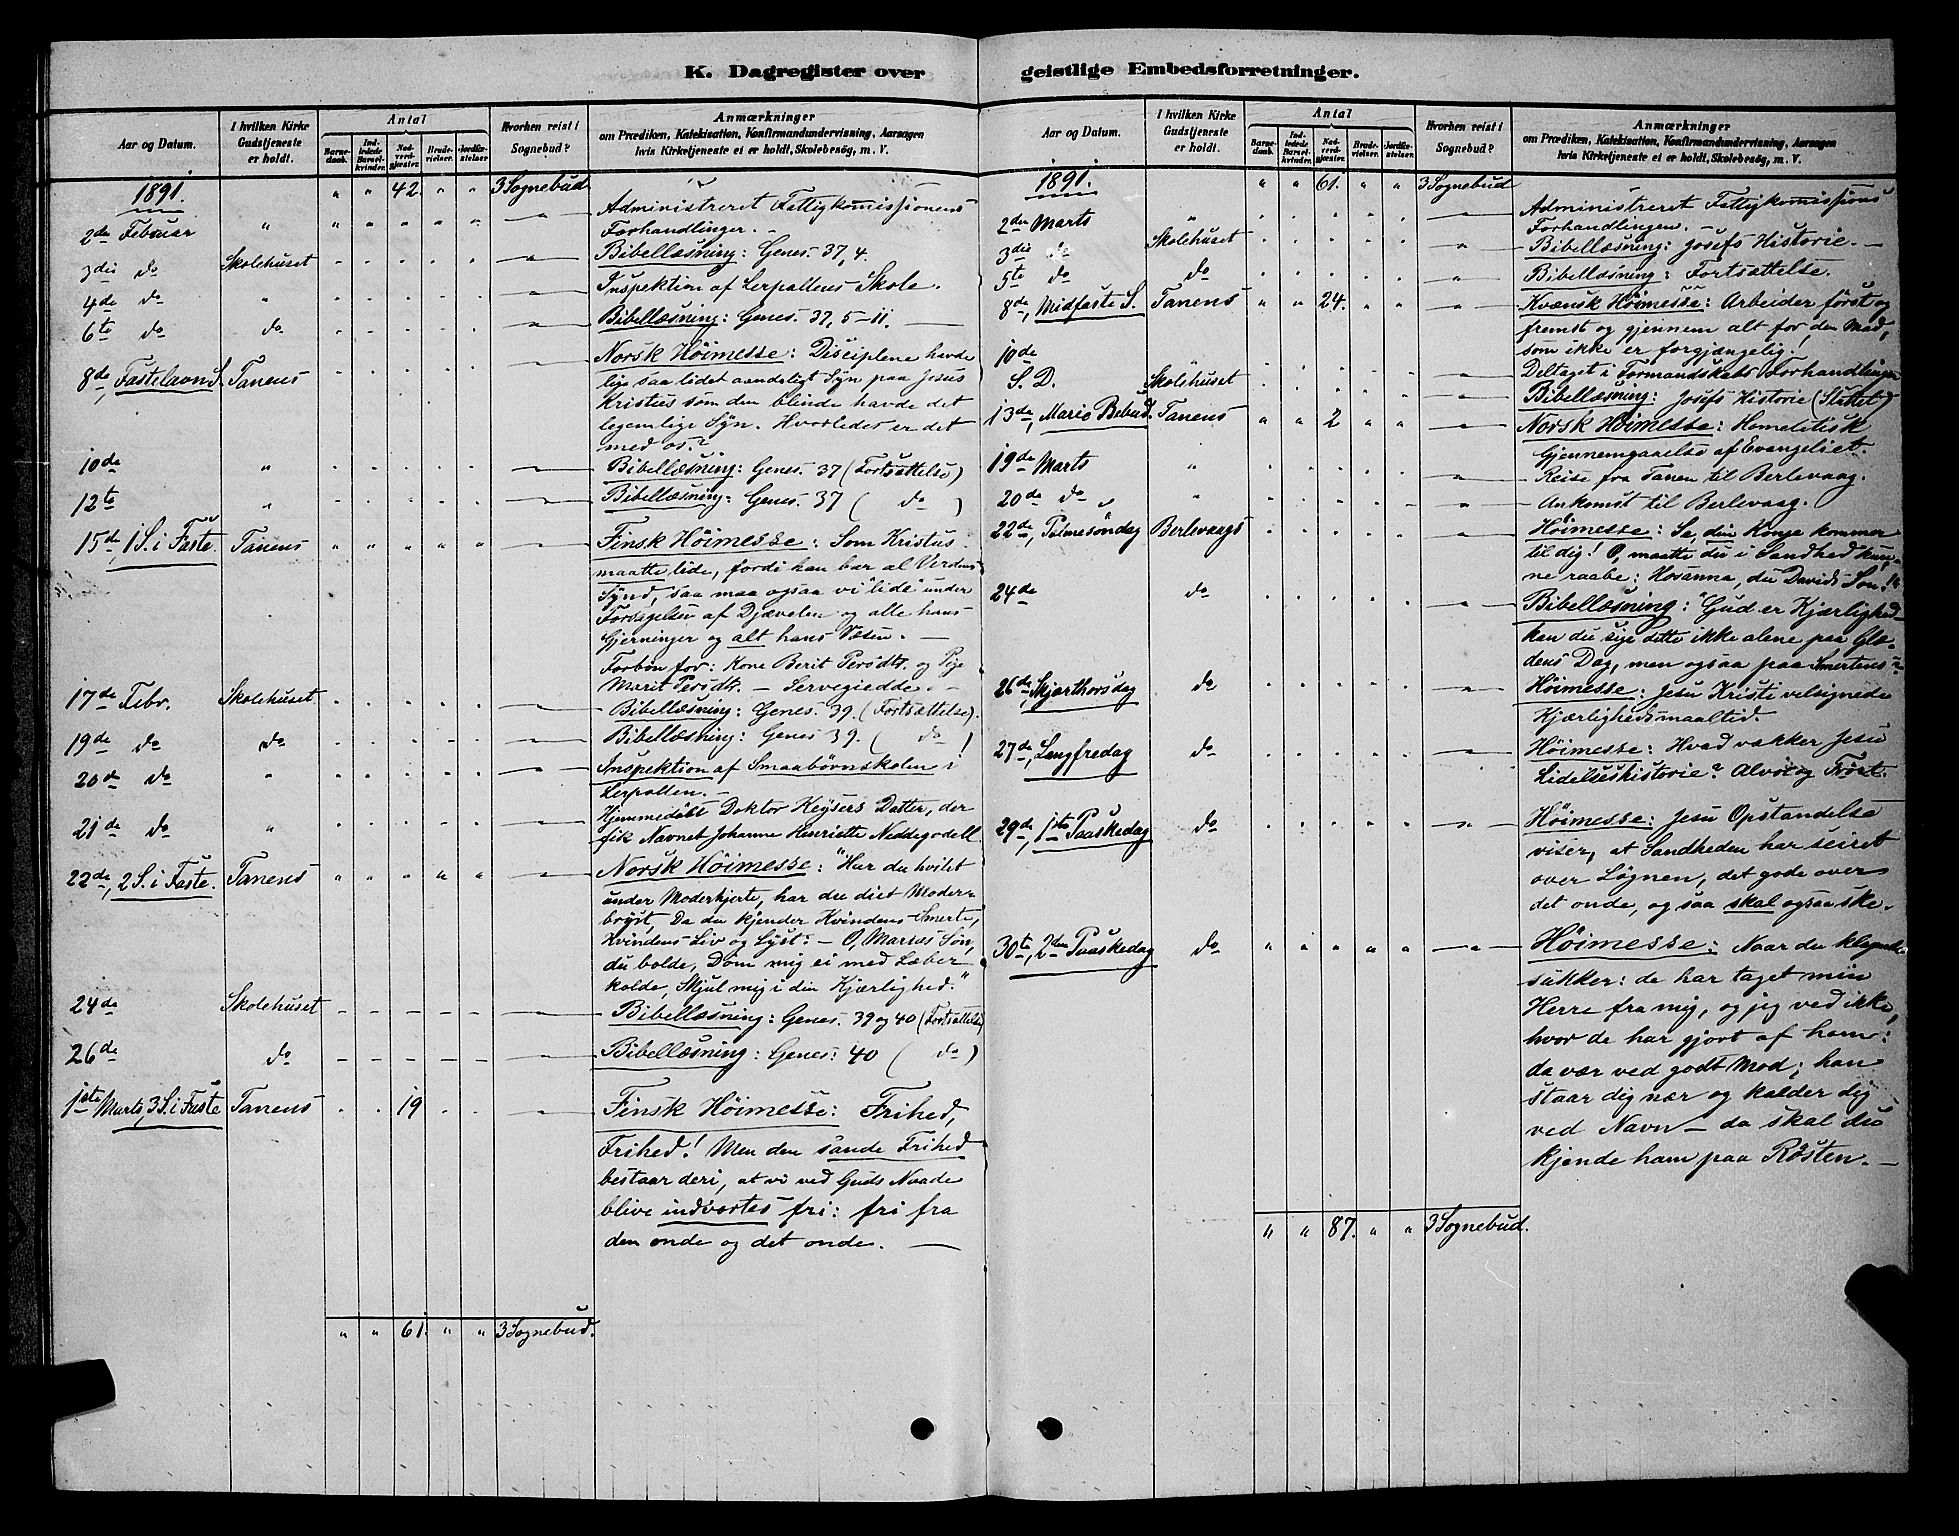 K. Dagregister over
Aar og Datum.
I hvilken Kirke Gudstjeneste er holdt.
Antal
Barnedaab.
Indledede Barselkvinder.
Nadverdgjæster.
Brudevielser.
Jordfæstelser.
Hvorhen reist i Sognebud?
Anmærkninger
om Prædiken, Katekisation, Konfirmandundervisning, Aarsagen
hvis Kirketjeneste ei er holdt, Skolebesøg, m. V.
1891. " " 42. " " 3 Sognebud
2den Februar " Administreret Fattigkommissionens
Forhandlinger. –
3die do Skolehuset Bibellæsning: Genes. 37, 4.
4de do " Inspektion af Lerpollens Skole.
6te do do Bibellæsning: Genes. 37, 5–11. —
8de, Fastelavn S. Tanens Norsk Höimesse: Disciplene havde
lige saa lidet aandeligt Syn paa Jesus
Kristus som den blinde havde det
legemlige Syn. Hvorledes er det
med os?
10de " Bibellæsning: Genes. 37 (Fortsættelse)
12te " Bibellæsning: Genes. 37 ( do )
15de, 1 S. i Faste. Tanens " " " " " Finsk Höimesse: Som Kristus
maatte lide, fordi han bar al Verdens
Synd, saa maa ogsaa vi "lide" under
Forsagelse af Djævelen og alle hans
Gjerninger og alt hans Væsen. –
Forbön for: Kone Berit Persdtr. og Pige
Marit Persdtr. – Servegiedde. –
17de Febr. Skolehuset Bibellæsning: Genes. 39. (Fortsættelse).
19de do do Bibellæsning: Genes 39. ( do )
20de do " Inspektion af Smaabørnskolen i
Lerpollen. –
21de do " Hjemmedöbt Doktor Keysers Datter, der
fik Navnet Johanne Henriette
22de, 2 S. i Faste. Tanens " " " " " Norsk Höimesse: "Har du hvilet
under Moderhjerte, har du diet Moder-
bryst, Da du kjender Kvindens Smerte,
Kvindens Liv og Lyst: – O, Marias Sön,
du bolde, Döm mig ei med Læber
kolde, Skjul mig i din Kjærlighed."
24de Skolehuset Bibellæsning: Genes. 39 og 40 (Fortsættelse)
26de do Bibellæsning: Genes: 40 ( do )
1ste Marts, 3 S. i Faste Tanens 19 Finsk Höimesse: Frihed,
Frihed! Men den sande Frihed
bestaar deri, at vi ved Guds Naade
blive indvortes fri: fri fra
den onde og det onde. —
" " 61. " " 3 Sognebud.
geistlige Embedsforretninger.
Aar og Datum.
I hvilken Kirke Gudstjeneste er holdt.
Antal
Barnedaab.
Indledede Barselkvinder.
Nadverdgjæster.
Brudevielser.
Jordfæstelser.
Hvorhen reist i Sognebud?
Anmærkninger
om Prædiken, Katekisation, Konfirmandundervisning, Aarsagen
hvis Kirketjeneste ei er holdt, Skolebesøg, m. V.
1891. " " 61. " " 3 Sognebud
2den Marts " Administreret Fattigkommissions
Forhandlingen. –
3die do Skolehuset Bibellæsning: Josefs Historie. –
5te do do Bibellæsning: Fortsættelse.
8de, Midfaste S. Tanens " " 24. Kvænsk Höimesse: Arbeider först og
fremst og gjennem alt for den Mad,
som ikke er forgjængelig!
10de " Deltaget i Formandskabs Forhandlinger
S. D. Skolehuset Bibellæsning: Josefs Historie (Sluttet)
13de, Mariæ Bebud. Tanens " " 2 " " Norsk Höimesse: Homeletisk
Gjennemgaaelse af Evangeliet.
19de Marts " Reise fra Tanen til Berlevaag.
20de do " Ankomst til Berlevaag.
22de, Palmesöndag Berlevaags Höimesse: Se, din Konge kommer
til dig! O, maatte du i Sandhed kun-
ne raabe: Hosanna, du Davids Sön!
24de do Bibellæsning: "Gud er Kjærlighed –
kan du sige dette ikke alene paa Glæ-
dens Dag, men ogsaa paa Smertens?
26de, Skjærthorsdag do Höimesse: Jesu Kristi velsignede
Kjærlighedsmaaltid.
27de, Langfredag do Höimesse: Hvad vækker Jesu
Lidelseshistorie? Alvor og Tröst.
29de, 1ste Paaskedag do Höimesse: Jesu Opstandelse
viser, at Sandheden har seiret
over Lögnen, det gode over
det onde, og saa skal ogsaa ske.
30te, 2den Paaskedag do " " " " " Höimesse: Naar du klagende
sukker: de har taget min
Herre fra mig, og jeg ved ikke,
hvor de har gjort af ham:
da vær ved godt Mod; han
staar dig nær og kalder dig
ved Navn – da skal du
kjende ham paa Rösten. –
" " 87. " " 3 Sognebud.